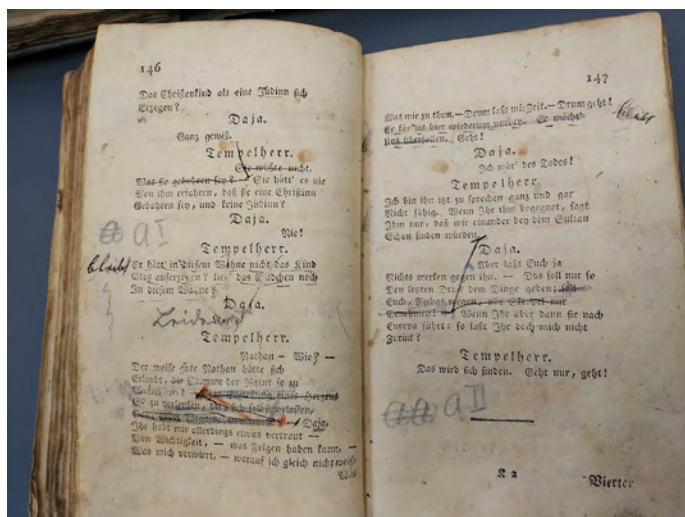 146
Das Christenkind als eine Jüdinn sich
Erzogen?
Daja.
Ganz gewiß.
Tempelherr.
Sie wüßte nicht,
Was sie gebohren sey? — Sie hätt' es nie
Von ihm erfahren, daß sie eine Christinn
Gebohren sey, und keine Jüdinn?
Daja.
Nie!
a I
Tempelherr.
bleibt
Er hätt' in diesem Wahne nicht das Kind
Blos auferzogen? ließ das Mädchen noch
In diesem Wahne?
Daja.
Leider!
Tempelherr.
Nathan — Wie? —
Der weise gute Nathan hätte sich
Erlaubt, die Stimme der Natur so zu
Verfälschen? — Die Ergießung eines Herzens
So zu verlenken, die, sich selbst gelassen,
Ganz andre Wege nehmen würde? — Daja,
Ihr habt mir allerdings etwas vertraut —
Von Wichtigkeit, — was Folgen haben kann, —
Was mich verwirrt, — worauf ich gleich nicht weiß,
Was
147
Was mir zu thun. — Drum laßt mir Zeit. — Drum geht!
bleibt
Er kömmt hier wiederum vorbey. Er möcht'
Uns überfallen. Geht!
Daja.
Ich wär' des Todes!
Tempelherr.
Ich bin ihn itzt zu sprechen ganz und gar
Nicht fähig. Wenn Ihr ihm begegnet, sagt
Ihm nur, daß wir einander bey dem Sultan
Schon finden würden.
Daja.
Aber laßt Euch ja
Nichts merken gegen ihn. — Das soll nur so
Den letzten Druck dem Dinge geben; soll
Euch, Rechas wegen, alle Skrupel nur
Benehmen! — Wenn Ihr aber dann sie nach
Europa führt: so laßt Ihr doch mich nicht
Zurück?
Tempelherr.
Das wird sich finden. Geht nur, geht!
a II
K 2
Vierter